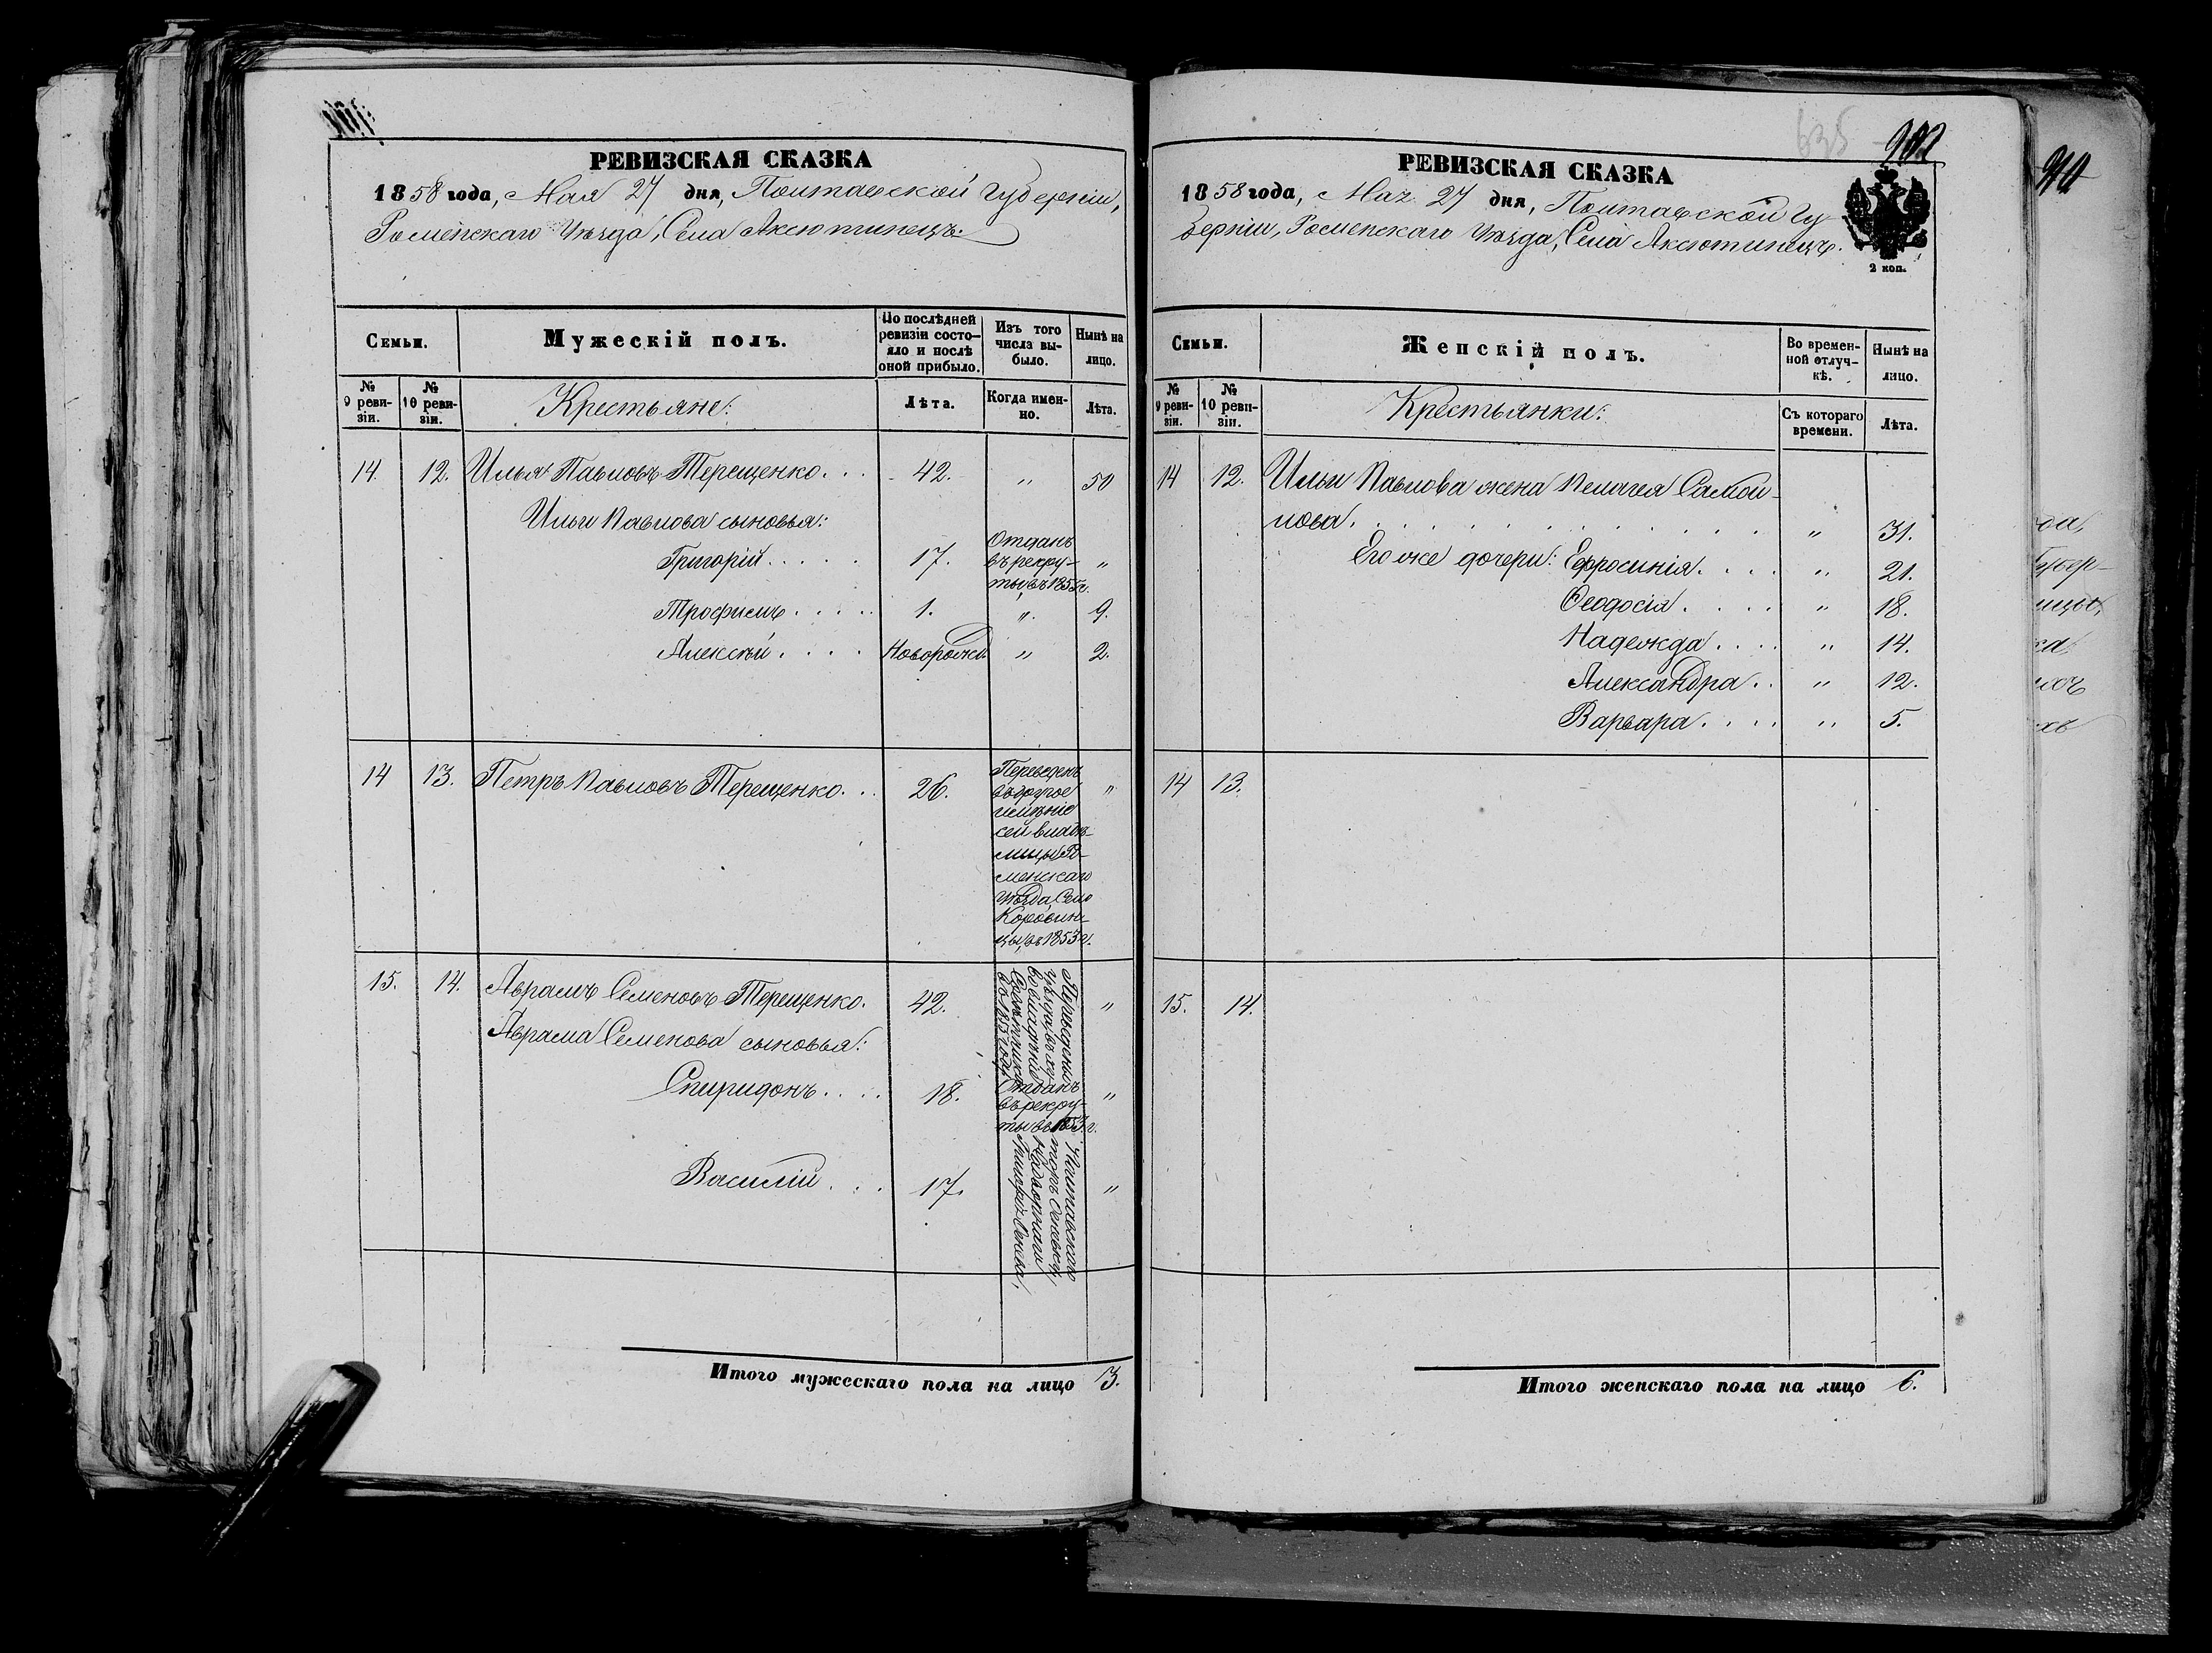 РЕВИЗСКАЯ СКАЗКА
1858 года, Мая 27 дня, Полтавской Губерніи,
Роменскаго Уѣзда, Села Аксютинецъ.
Семьи.
Мужескій полъ.
По послѣдней ревизіи состояло и послѣ оной прибыло.
Изъ того числа выбыло.
Нынѣ на лицо.
№ 9 ревизіи.
№ 10 ревизіи.
Крестьяне:
Лѣта.
Когда именно.
Лѣта.
14. 12. Илья Павловъ Терещенко. . . 42. " 50
Ильи Павлова сыновья:
Григорій. . . . . 17. Отданъ въ рекруты въ 1855 г. "
Трофимъ . . . . . 1. " 9.
Алексѣй . . . . Новорожд. " 2.
14 13. Петръ Павловъ Терещенко. . . 26. "
Переведенъ
въ другое
имѣніе
сей владѣ-
лицы Ро-
менскаго
Уѣзда, Село
Коровин-
цы, въ 1853 г.
15. 14. Аврамъ Семеновъ Терещенко. 42. "
Аврама Семенова сыновья:
Спиридонъ . . . . 18. Отданъ въ рекруты въ 1853 г. "
Василій . . . 17. "
Переведены Полтавскаго
Уѣзда, въ
во владѣніе Надворнаго
Совѣтника Григорія
въ 185 году
Итого мужескаго пола на лицо 3.
635
РЕВИЗСКАЯ СКАЗКА
1858 года, Мая 27 дня, Полтавской Гу-
берніи, Роменскаго Уѣзда, Села Аксютинецъ.
2 коп.
Семьи.
Женскій полъ.
Во временной отлучкѣ.
Нынѣ на лицо.
№ 9 ревизіи.
№ 10 ревизіи.
Крестьянки:
Съ котораго времени.
Лѣта.
14 12. Ильи Павлова жена Пелагея Самой-
лова. . . . . . . . . . " 31.
Его же дочери: Ефросинія. . . . " 21.
Ѳеодосія . . . . " 18.
Надежда . . . . " 14.
Александра . . " 12.
Варвара . . . . " 5.
14 13.
15. 14.
Итого женскаго пола на лицо 6.